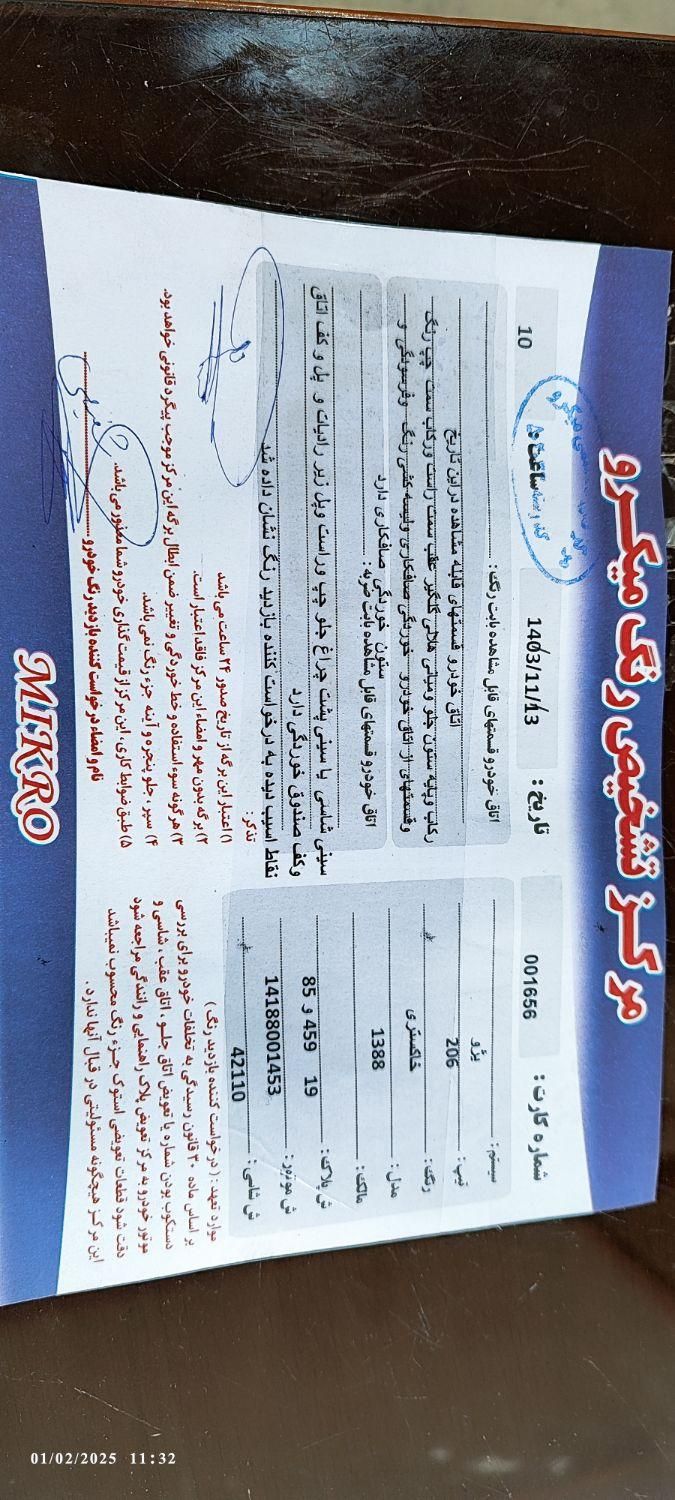 مرکز تشخیص رنگ میکرو
شماره کارت : 001656
تاریخ : 1403/11/13
ساعت : 10
سیستم : پژو
تیپ : 206
رنگ : خاکستری
مدل : 1388
مالک :
ش پلاک : 459 و 85 19
ش موتور : 14188001453
ش شاسی : 42110
اتاق خودرو قسمتهای قابل مشاهده بابت رنگ :
اتاق خودرو قسمتهای قابله مشاهده دراین تاریخ
رکاب وپایه ستون جلو ومیانی هلالی گلگیر عقب سمت راست ورکاب سمت چپ رنگ
وقسمتهای از اتاق خودرو خوردگی صافکاری ولیسه کشی رنگ وفرسودگی و
ستون خوردگی صافکاری دارد
اتاق خودرو قسمتهای قابل مشاهده بابت ضربه :
سینی شاسی با سینی پشت چراغ جلو چپ وراست وپل زیر رادیات و پل و کف اتاق
وکف صندوق خوردگی دارد
نقاط آسیب دیده به درخواست کننده بازدید رنگ نشان داده شد
تذکر :
۱) اعتبار این برگه از تاریخ صدور ۲۴ ساعت می باشد
۲) برگه بدون مهر و امضاء این مرکز فاقد اعتبار است.
۳) هر گونه سوء استفاده و خط خوردگی و تغییر ضمن ابطال برگه این مرکز موجب پیگرد قانونی خواهد بود.
۴) سپر ، جلو پنجره و آینه جزء رنگ نمی باشد.
۵) طبق ضوابط کاری، این مرکز از قیمت گذاری خودرو شما معذور می باشد.
نام و امضاء درخواست کننده بازدید رنگ خودرو
موارد تعهد : ( درخواست کننده بازدید رنگ )
بر اساس ماده ۳۰ قانون رسیدگی به تخلفات خودرو برای بررسی
دستکوب بودن شماره یا تعویض اتاق جلو ، اتاق عقب ، شاسی و
موتور خودرو به مرکز تعویض پلاک راهنمایی و رانندگی مراجعه شود
دقت شود قطعات تعویضی استوک جزء رنگ محسوب نمیباشد
این مرکز هیچگونه مسئولیتی در قبال آنها ندارد.
MIKRO
01/02/2025 11:32